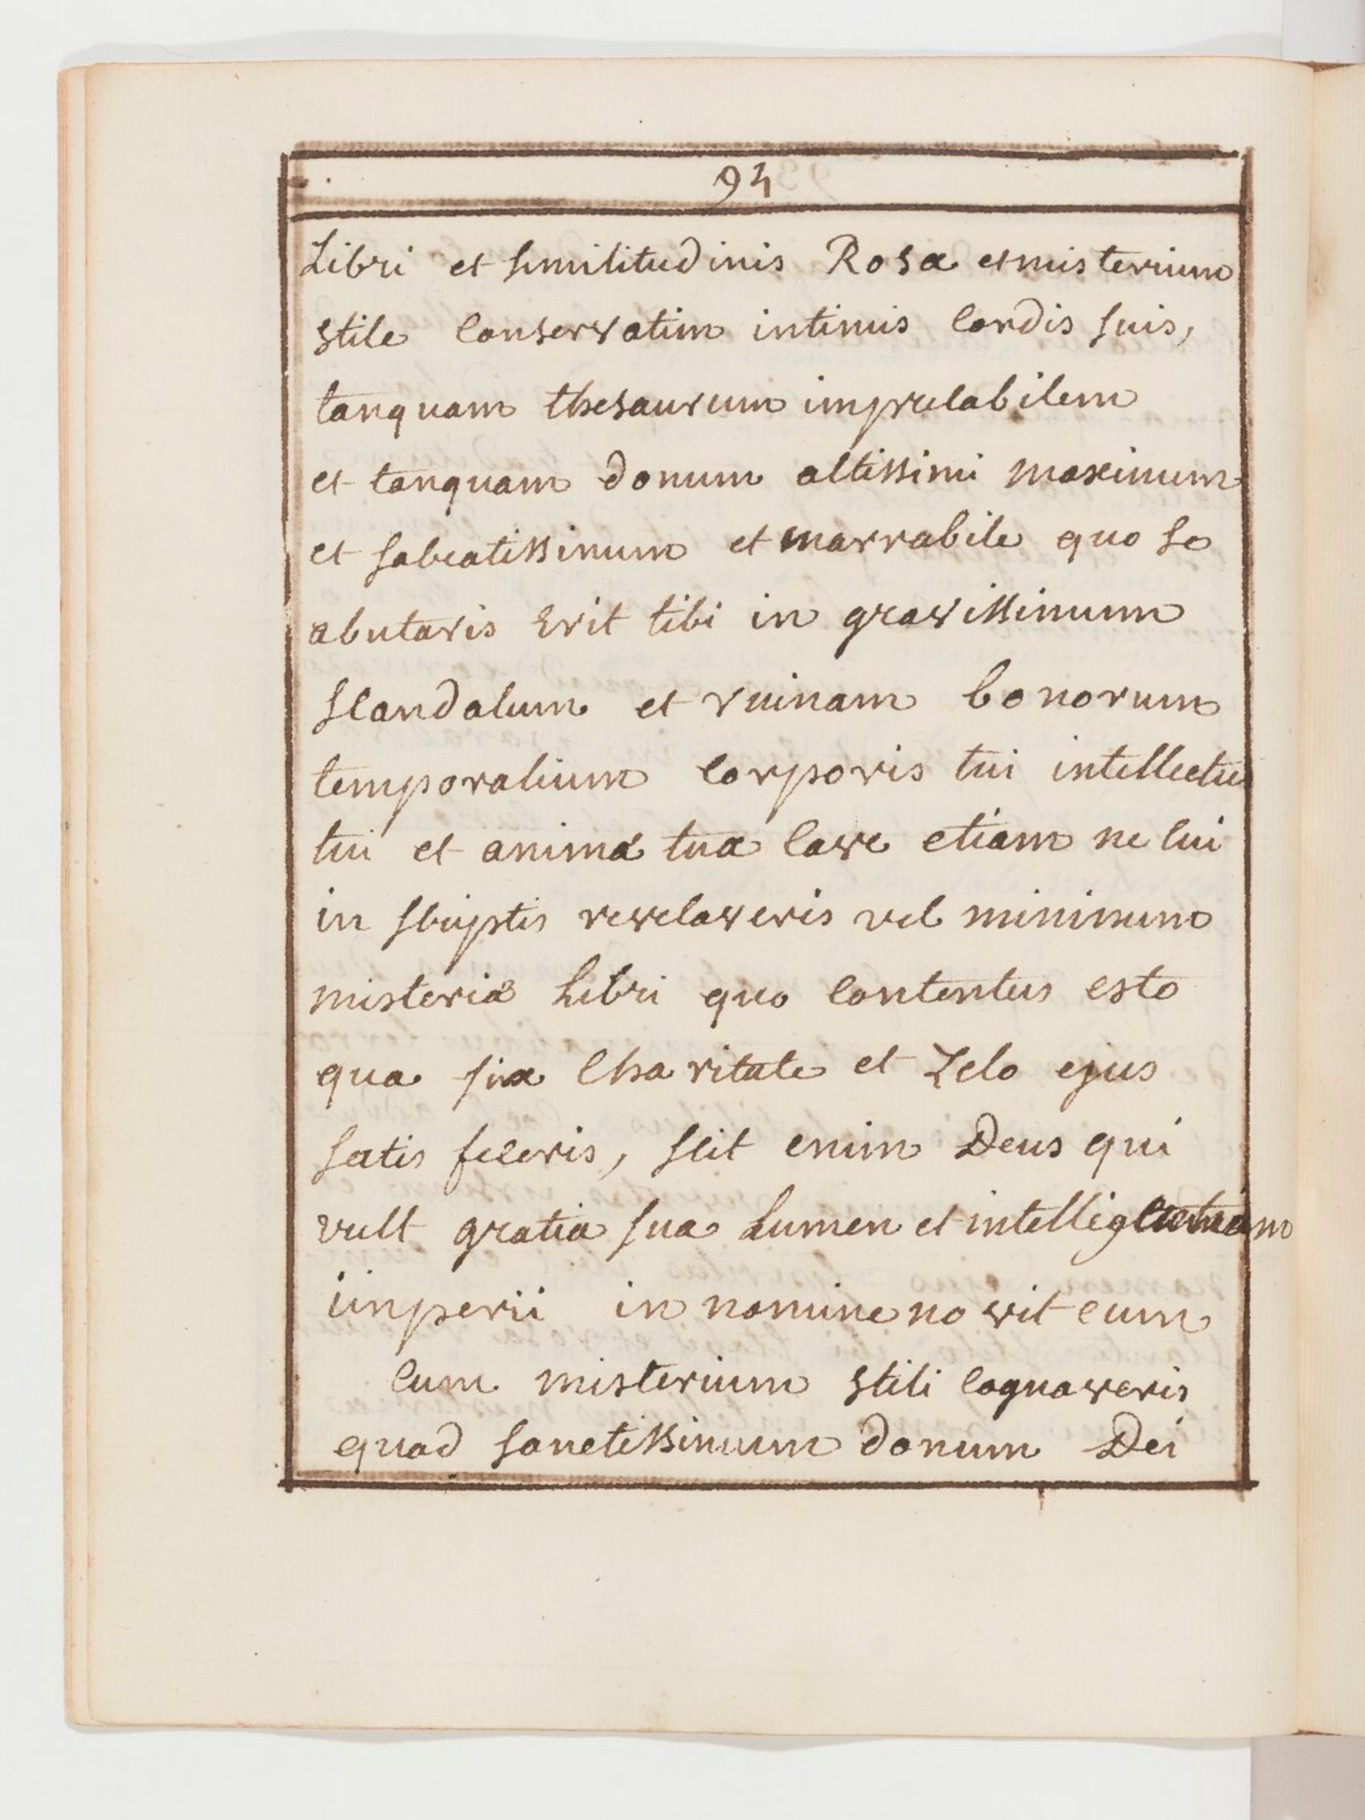 94
Libri et similitudinis Rosæ et misterium
stile Conservatim intimis Cordis suis,
tanquam thesaurum imprælabilem
et tanquam donum altissimi maximum
et sabcatissinum et marrabile quo se
abutaris Erit tibi in gravissinum
scandalum et ruinam bonorum
temporalium corporis tui intellectus
tui et animæ tuæ Cave etiam ne cui
in scriptis revelaveris vel minimum
misteriæ Libri quo Contentus esto
qua sua Charitate et Zelo ejus
satis feceris, scit enim Deus qui
vult gratia sua Lumen et
imperii in nomine novit eum
cum misterium stili cognaveris
quod sanctissinum donum Dei